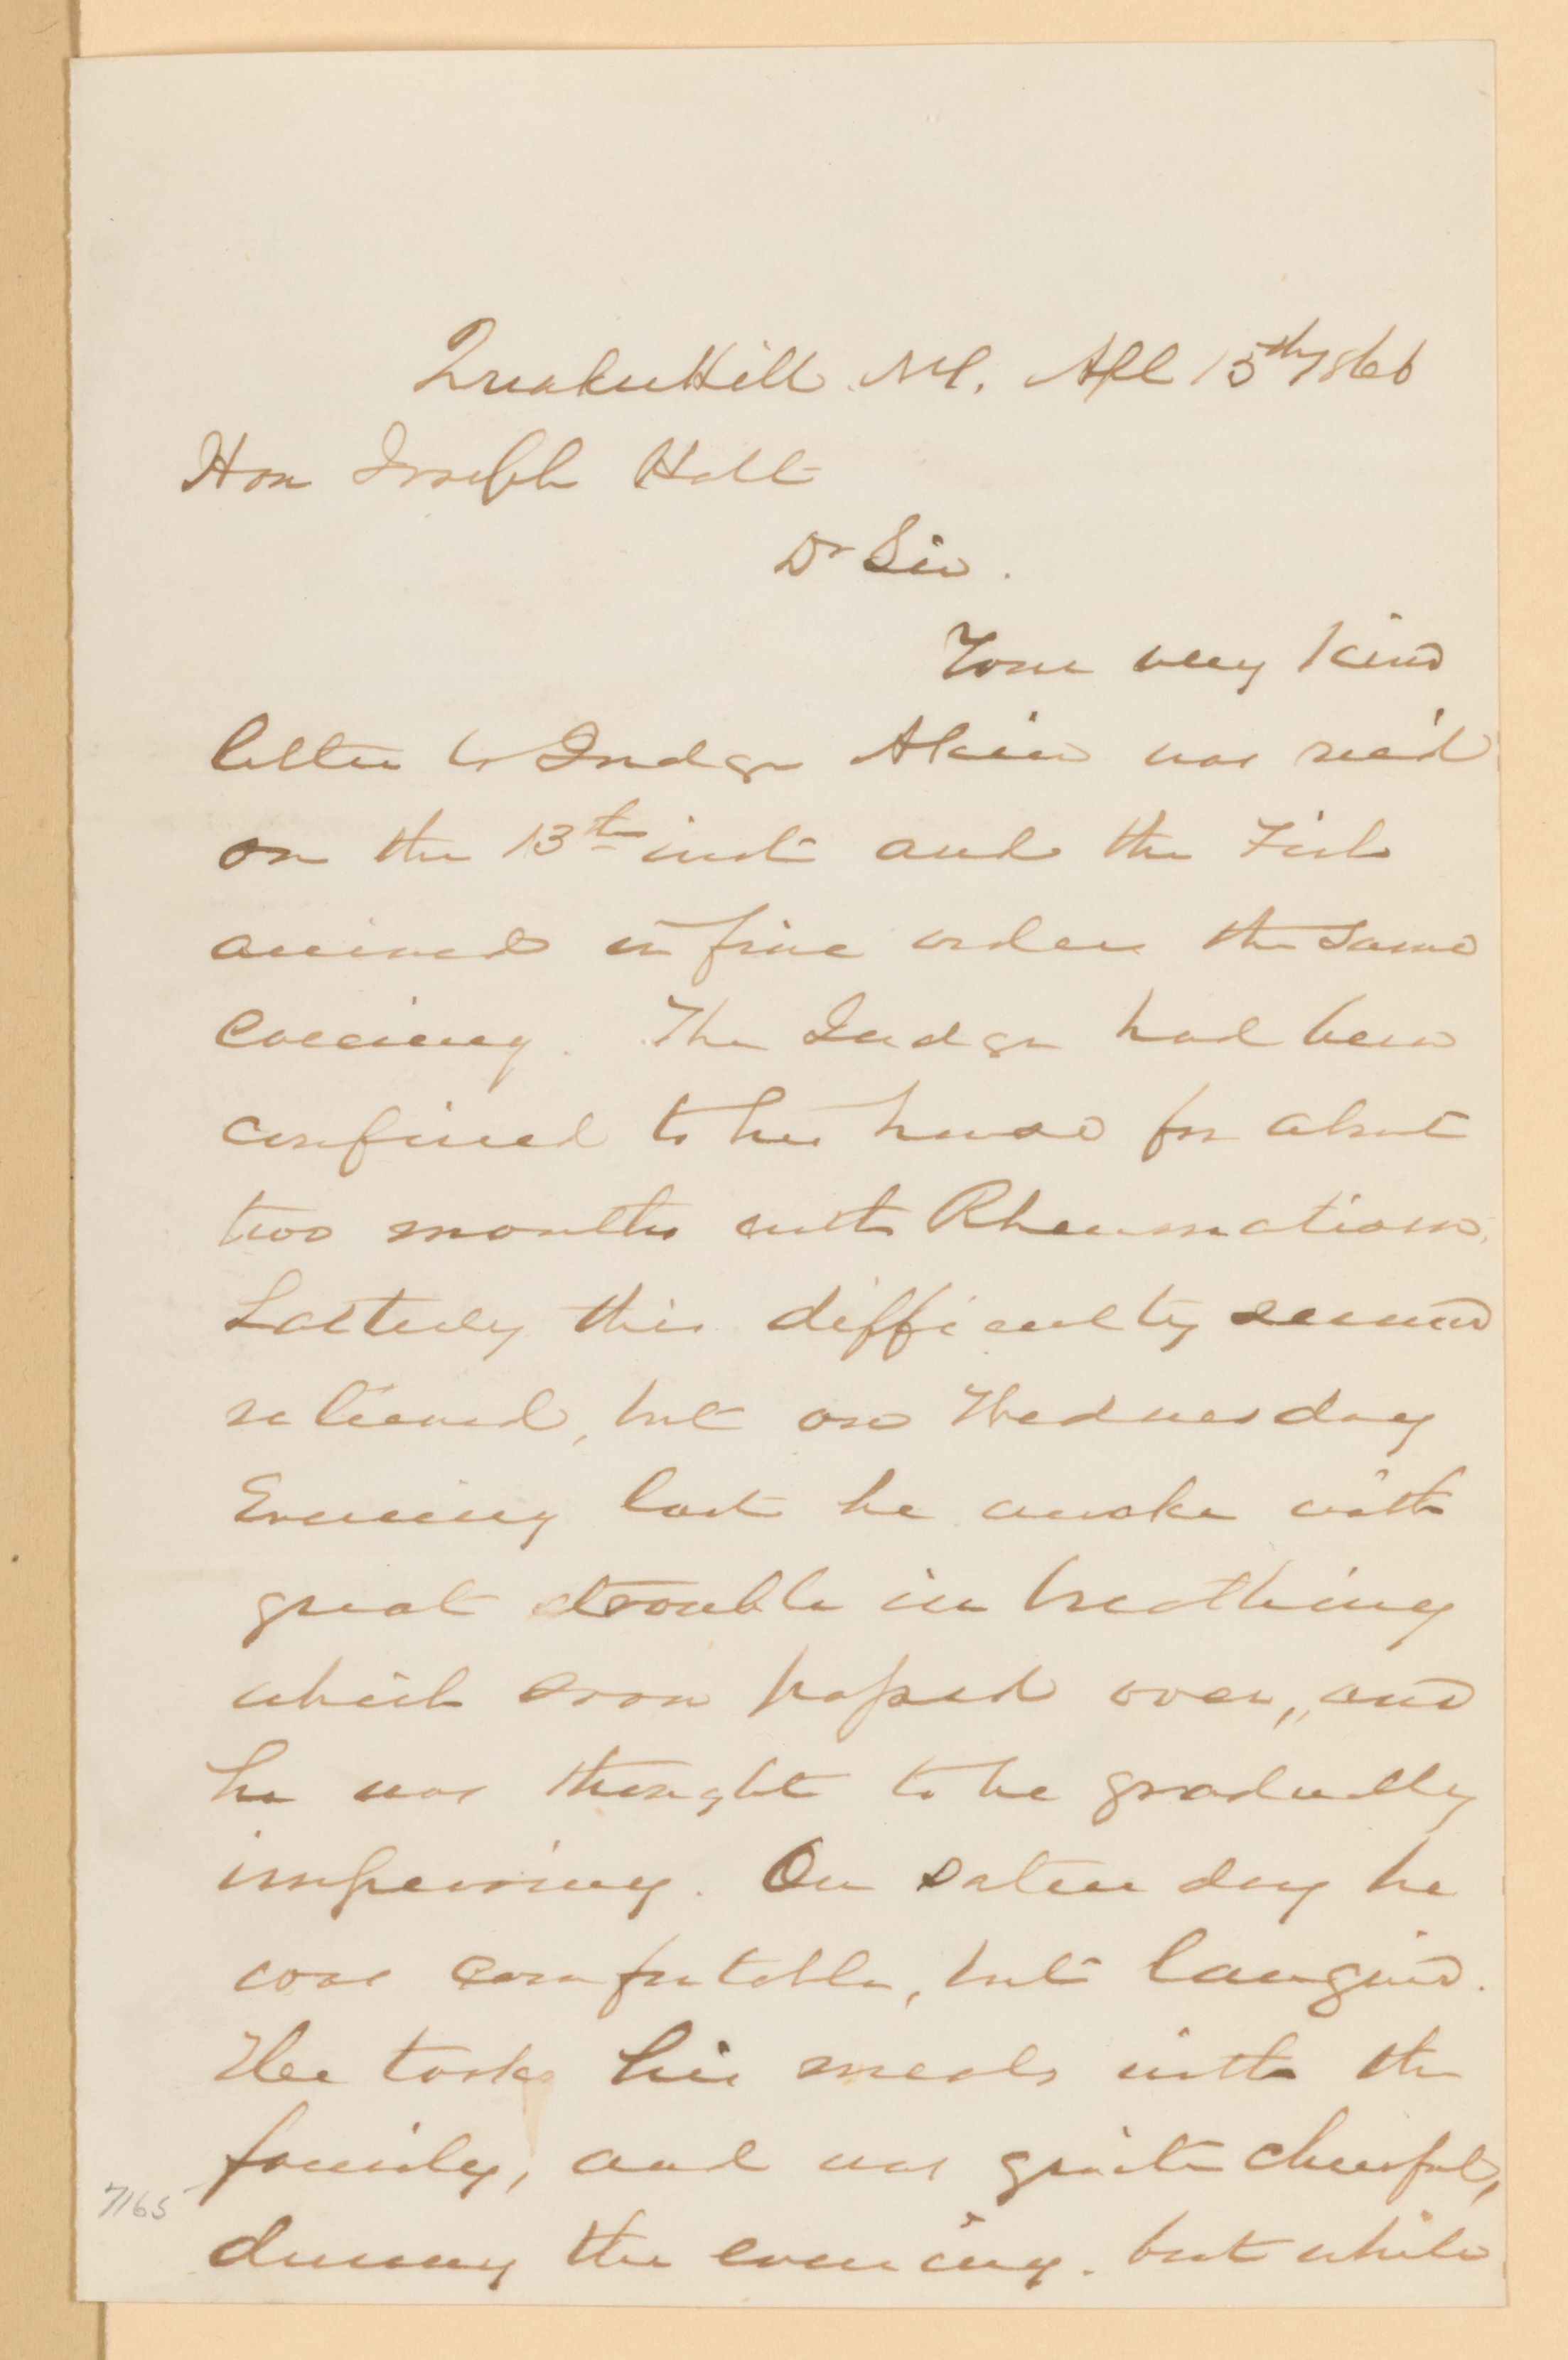 Quaker Hill N.Y. Apl 15th 1866
Hon Joseph Holt
Dr Sir.
Your very kind
letter to Judge Akin was rec'd
on the 13th inst and the Fish
arrived in fine order the same
Evening. The Judge had been
confined to his house for about
two months with Rheumatism.
Latterly this difficulty seemed
relieved, but on Wednesday
Evening last he awoke with
great trouble in breathing
which soon passed over, and
he was thought to be gradually
improving. On Saturday he
was comfortable, but languid.
He took his meals with the
family, and was quite cheerful,
during the evening. but while
7165